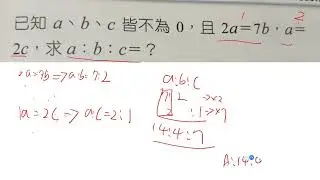 已知 a、b、c 皆不為 0，且 2a=7b，a=
2c，求 a：b：c=？
1 2
2a=7b=>a:b=7:2
1a=2C=>a:C=2:1
a:b:C
7:2 ->x2
2 :1->x7
14:4:7
A:14:4